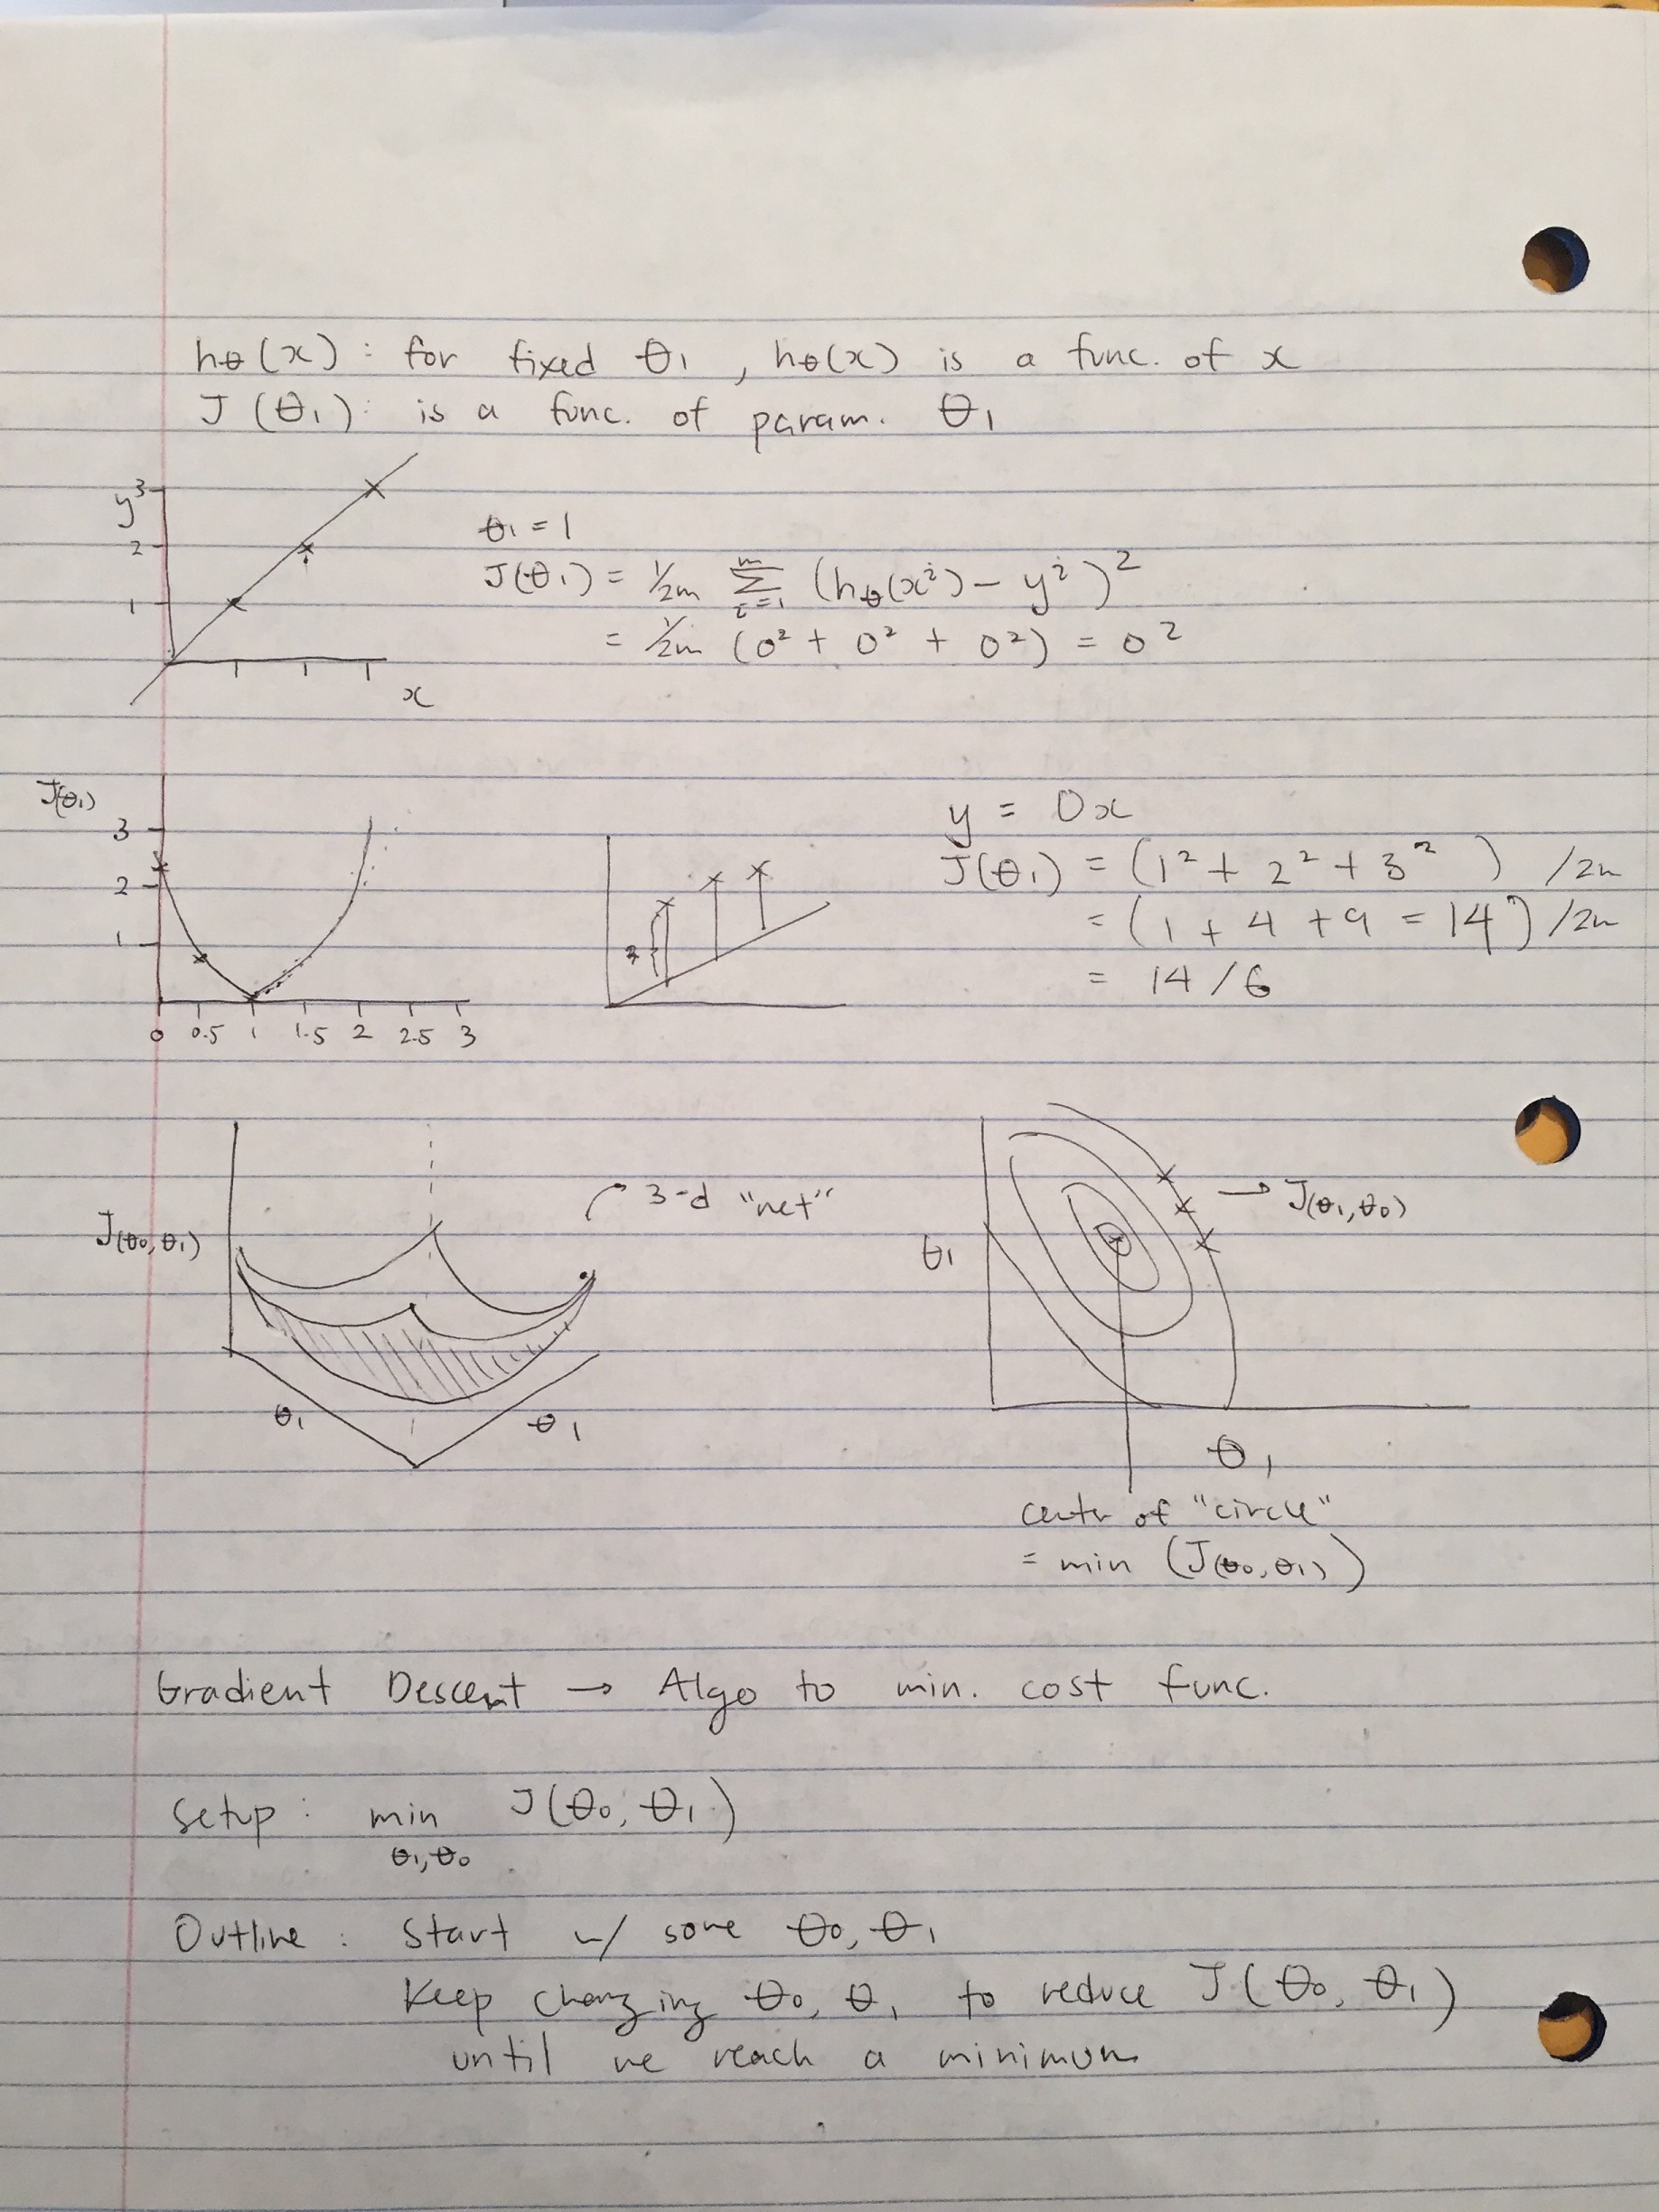 hθ(x) : for fixed θ1 , hθ(x) is a func. of x
J (θ1) : is a func. of param. θ1
y
3
2
1
x
θ1 = 1
J(θ1) = 1/2m Σ i=1 m (hθ(x^i) - y^i)^2
= 1/2m (0² + 0² + 0²) = 0²
J(θ1)
3
2
1
0 0.5 1 1.5 2 2.5 3
y = 0x
J(θ1) = (1² + 2² + 3²) /2m
= (1 + 4 + 9 = 14) /2m
= 14 / 6
J(θ0, θ1)
3-d "net"
θ1
θ1
θ1
→ J(θ1, θ0)
θ1
center of "circle"
= min (J(θ0, θ1))
Gradient Descent → Algo to min. cost func.
Setup : min J(θ0, θ1)
θ1, θ0
Outline : Start w/ some θ0, θ1
Keep changing θ0, θ1 to reduce J(θ0, θ1)
until we reach a minimum